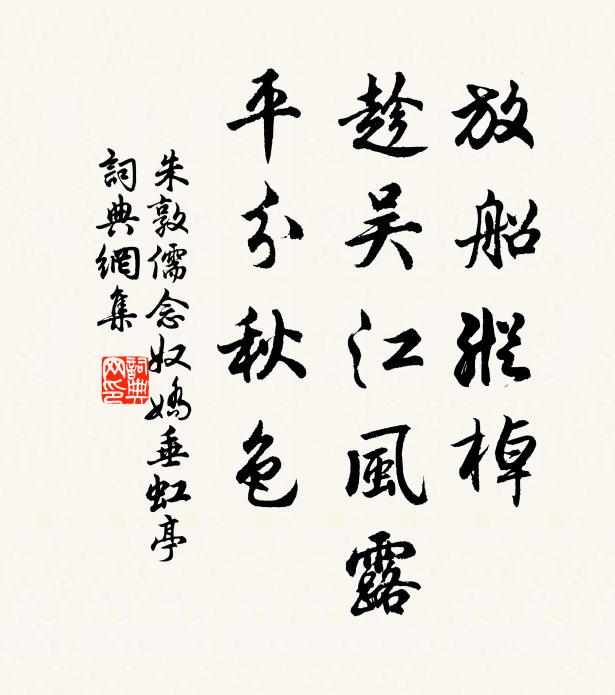 放船縱棹
趁吴江風露
平分秋色
朱敦儒念奴嬌垂虹亭
詞典網集
詞典網印